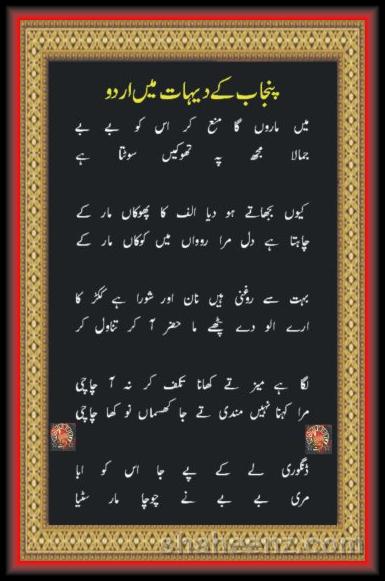 پنجاب کے دیہات میں اردو
میں ماروں گا منع کر اس کو بے بے
جمالا مجھ پہ تھوکیں سوٹتا ہے
کیوں بجھاتے ہو دیا الف کا پھوکاں مار کے
چاہتا ہے دل مرا روواں میں کوکاں مار کے
بہت سے روغنی ہیں نان اور شورا ہے ککڑ کا
ارے الو دے پٹھے ما حضر آ کر تناول کر
لگا ہے میز تے کھانا تکلف کر نہ آ چاچی
مرا کہنا نہیں مندی تے جا کھسماں نو کھا چاچی
ڈنگوری لے کے پے جا اس کو ابا
مری بے بے نے چوچا مار سٹیا
shaheenz.com.pk